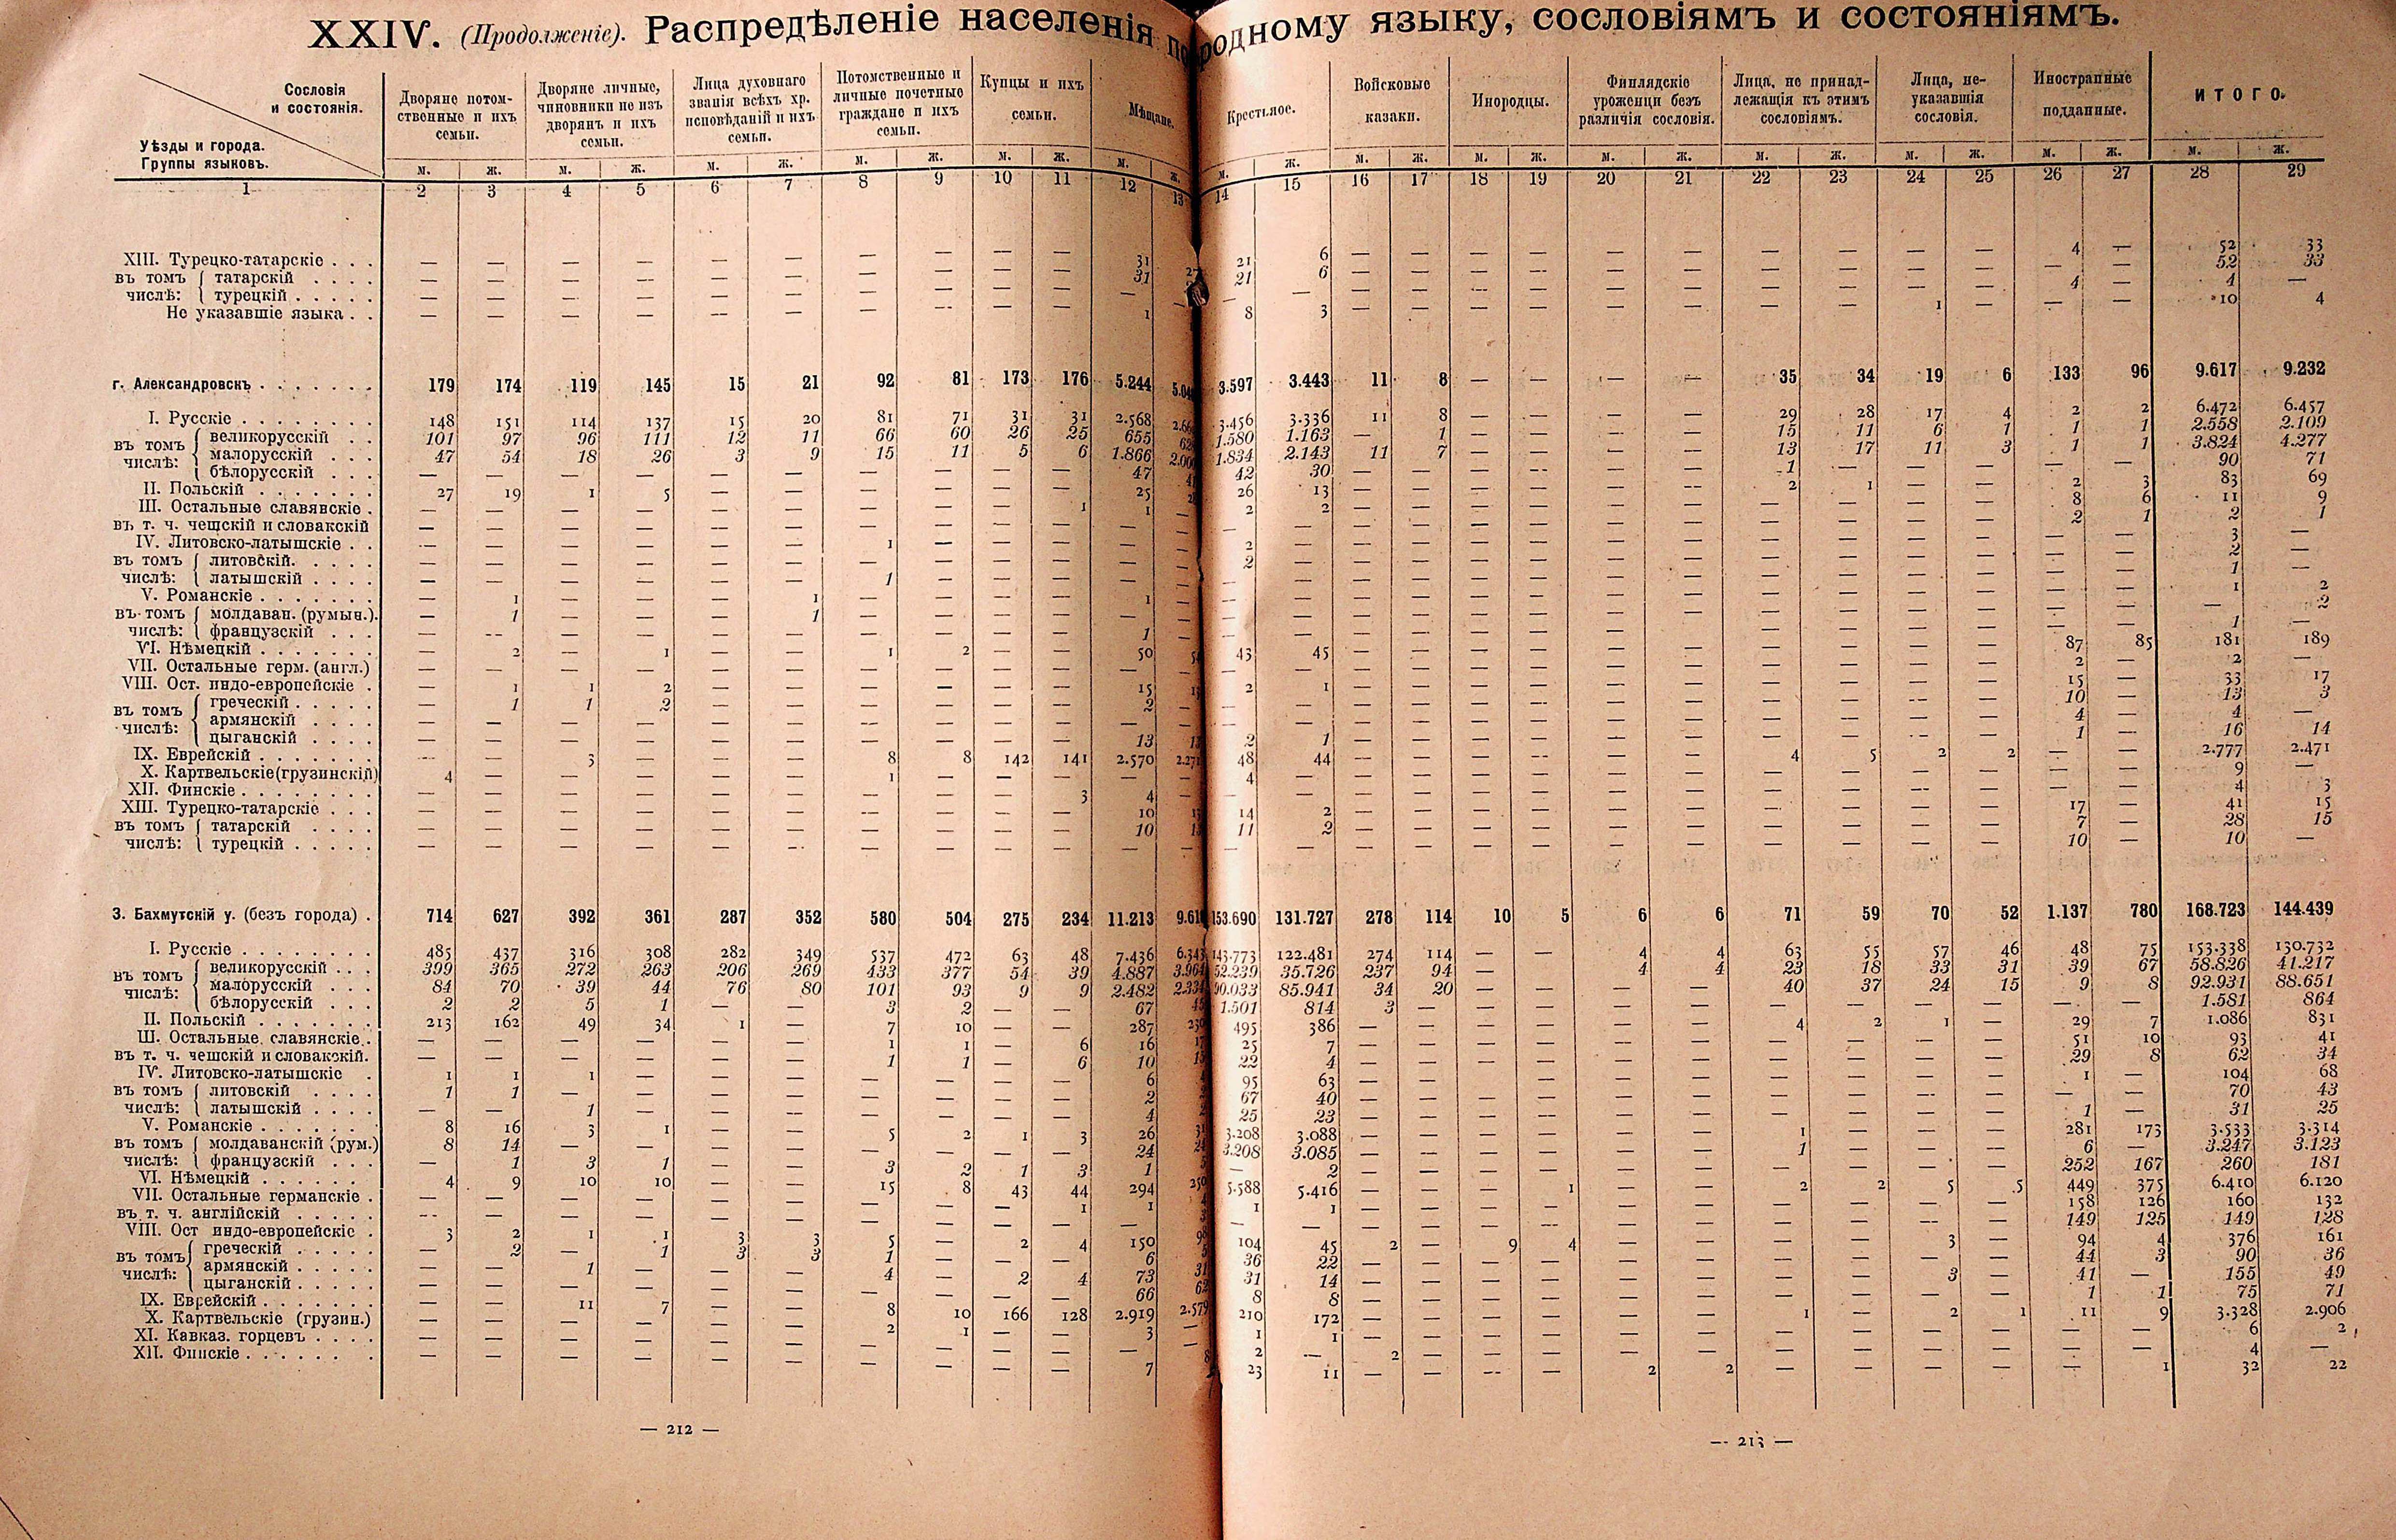 XXIV. (Продолженіе). Распредѣленіе населенія по родному языку, сословіямъ и состояніямъ.
Сословія и состоянія.
Уѣзды и города.
Группы языковъ.
Дворяне потомственные и ихъ семьи.
Дворяне личные, чиновники не изъ дворянъ и ихъ семьи.
Лица духовнаго званія всѣхъ хр. исповѣданій и ихъ семьи.
Потомственные и личные почетные граждане и ихъ семьи.
Купцы и ихъ семьи.
Мѣщане.
Крестьяне.
Войсковые казаки.
Инородцы.
Финляндскіе уроженцы безъ различія сословія.
Лица, не принадлежащія къ этимъ сословіямъ.
Лица, не-указавшія сословія.
Иностранные подданные.
ИТОГО.
м. ж. м. ж. м. ж. м. ж. м. ж. м. ж. м. ж. м. ж. м. ж. м. ж. м. ж. м. ж. м. ж. м. ж.
1 2 3 4 5 6 7 8 9 10 11 12 13 14 15 16 17 18 19 20 21 22 23 24 25 26 27 28 29
XIII. Турецко-татарскіе . . . — — — — — — — — — — 31 21 6 — — — — — — — — — — 4 — 52 33
въ томъ числѣ: татарскій . . . . — — — — — — — — — — 31 27 21 6 — — — — — — — — — — — — 52 33
турецкій . . . . . — — — — — — — — — — — — — — — — — — — — — — — 4 — 4 —
Не указавшіе языка . . — — — — — — — — — — 1 8 3 — — — — — — — — 1 — — — 10 4
г. Александровскъ . . . . . . . 179 174 119 145 15 21 92 81 173 176 5.244 3.597 3.443 11 8 — — — — 35 34 19 6 133 96 9.617 9.232
I. Русскіе . . . . . . . . 148 151 114 137 15 20 81 71 31 31 2.568 3.456 3.336 11 8 — — — — 29 28 17 4 2 2 6.472 6.457
въ томъ числѣ: великорусскій . . 101 97 96 111 12 11 66 60 26 25 655 1.580 1.163 — 1 — — — — 15 11 6 1 1 1 2.558 2.109
малорусскій . . . 47 54 18 26 3 9 15 11 5 6 1.866 1.834 2.143 11 7 — — — — 13 17 11 3 1 1 3.824 4.277
бѣлорусскій . . . — — — — — — — — — — 47 42 30 — — — — — — 1 — — — — — 90 71
II. Польскій . . . . . . . 27 19 1 5 — — — — — — 25 26 13 — — — — — — 2 1 — — 2 3 83 69
III. Остальные славянскіе . — — — — — — — — — 1 1 2 2 — — — — — — — — — — 8 6 11 9
въ т. ч. чешскій и словакскій — — — — — — — — — — — — — — — — — — — — — — — 2 1 2 1
IV. Литовско-латышскіе . . — — — — — — 1 — — — — — 2 — — — — — — — — — — — — — 3 —
въ томъ числѣ: литовскій. . . . . — — — — — — — — — — — — 2 — — — — — — — — — — — — — 2 —
латышскій . . . . — — — — — — 1 — — — — — — — — — — — — — — — — — — — 1 —
V. Романскіе . . . . . . . — 1 — — — 1 — — — — 1 — — — — — — — — — — — — — — — 1 2
въ томъ числѣ: молдаван. (румын.). — 1 — — — 1 — — — — — — — — — — — — — — — — — — — — — 2
французскій . . . — — — — — — — — — — 1 — — — — — — — — — — — — — — — 1 —
VI. Нѣмецкій . . . . . . . — 2 — 1 — — 1 2 — — 50 43 45 — — — — — — — — — — 87 85 181 189
VII. Остальные герм. (англ.) — — — — — — — — — — — — — — — — — — — — — — — — 2 — 2 —
VIII. Ост. индо-европейскіе . — 1 1 2 — — — — — — 15 2 1 — — — — — — — — — — 15 — 33 17
въ томъ числѣ: греческій . . . . . — 1 1 2 — — — — — — 2 — — — — — — — — — — — — — 10 — 13 3
армянскій . . . . — — — — — — — — — — — — — — — — — — — — — — — — 4 — 4 —
цыганскій . . . . — — — — — — — — — — 13 2 1 — — — — — — — — — — 1 — 16 14
IX. Еврейскій . . . . . . . — — 3 — — — 8 8 142 141 2.570 2.271 48 44 — — — — — — 4 5 2 2 — — 2.777 2.471
X. Картвельскіе (грузинскій) 4 — — — — — 1 — — — — — 4 — — — — — — — — — — — — — 9 —
XII. Финскіе . . . . . . . . — — — — — — — — — 3 4 — — — — — — — — — — — — — — — 4 3
XIII. Турецко-татарскіе . . . — — — — — — — — — — 10 14 2 — — — — — — — — — — 17 — 41 15
въ томъ числѣ: татарскій . . . . — — — — — — — — — — 10 11 2 — — — — — — — — — — 7 — 28 15
турецкій . . . . . — — — — — — — — — — — — — — — — — — — — — — — — 10 — 10 —
3. Бахмутскій у. (безъ города) . 714 627 392 361 287 352 580 504 275 234 11.213 153.690 131.727 278 114 10 5 6 6 71 59 70 52 1.137 780 168.723 144.439
I. Русскіе . . . . . . . . 485 437 316 308 282 349 537 472 63 48 7.436 6.343 143.773 122.481 274 114 — — 4 4 63 55 57 46 48 75 153.338 130.732
въ томъ числѣ: великорусскій . . . 399 365 272 263 206 269 433 377 54 39 4.887 3.964 52.239 35.726 237 94 — — 4 4 23 18 33 31 39 67 58.826 41.217
малорусскій . . . 84 70 39 44 76 80 101 93 9 9 2.482 2.334 90.033 85.941 34 20 — — — — 40 37 24 15 9 8 92.931 88.651
бѣлорусскій . . . 2 2 5 1 — — 3 2 — — 67 45 1.501 814 3 — — — — — — — — — — — 1.581 864
II. Польскій . . . . . . . 213 162 49 34 1 — 7 10 — — 287 230 495 386 — — — — — — 4 2 1 — 29 7 1.086 831
III. Остальные славянскіе . . — — — — — — 1 1 — 6 16 17 25 7 — — — — — — — — — — 51 10 93 41
въ т. ч. чешскій и словакскій. — — — — — — 1 1 — 6 10 22 4 — — — — — — — — — — 29 8 62 34
IV. Литовско-латышскіе . 1 1 1 — — — — — — — 6 4 95 63 — — — — — — — — — — 1 — 104 68
въ томъ числѣ: литовскій . . . . 1 1 — — — — — — — — 2 2 67 40 — — — — — — — — — — — — 70 43
латышскій . . . . — — 1 — — — — — — — 4 2 25 23 — — — — — — — — — — 1 — 31 25
V. Романскіе . . . . . . 8 16 3 1 — — 5 2 1 3 26 31 3.208 3.088 — — — — — — 1 — — — 281 173 3.533 3.314
въ томъ числѣ: молдаванскій (рум.) 8 14 — — — — — — — — 24 24 3.208 3.085 — — — — — — 1 — — — 6 — 3.247 3.123
французскій . . . — 1 3 1 — — 3 2 1 3 1 5 — 2 — — — — — — — — — — 252 167 260 181
VI. Нѣмецкій . . . . . . 4 9 10 10 — — 15 8 43 44 294 250 5.588 5.416 — — — 1 — — 2 2 5 5 449 375 6.410 6.120
VII. Остальные германскіе . — — — — — — — — — 1 1 4 1 1 — — — — — — — — — — 158 126 160 132
въ т. ч. англійскій . . . . . — — — — — — — — — — — 3 — — — — — — — — — — — — 149 125 149 128
VIII. Ост индо-европейскіе . 3 2 1 1 3 3 5 — 2 4 150 98 104 45 2 — 9 4 — — — — 3 — 94 4 376 161
въ томъ числѣ: греческій . . . . . — 2 — 1 3 3 1 — — — 6 5 36 22 — — — — — — — — — — 44 3 90 36
армянскій . . . . . — — 1 — — — 4 — 2 4 73 31 31 14 — — — — — — — — 3 — 41 — 155 49
цыганскій . . . . . — — — — — — — — — — 66 62 8 8 — — — — — — — — — — 1 1 75 71
IX. Еврейскій . . . . . . . — — 11 7 — — 8 10 166 128 2.919 2.579 210 172 — — — — — — 1 — 2 1 11 9 3.328 2.906
X. Картвельскіе (грузин.) — — — — — — 2 1 — — 3 — 1 1 — — — — — — — — — — — — 6 2
XI. Кавказ. горцевъ . . . . — — — — — — — — — — — — 2 — 2 — — — — — — — — — — — 4 —
XII. Финскіе . . . . . . . — — — — — — — — — — 7 8 23 11 — — — — 2 2 — — — — — 1 32 22
— 212 —
— 213 —